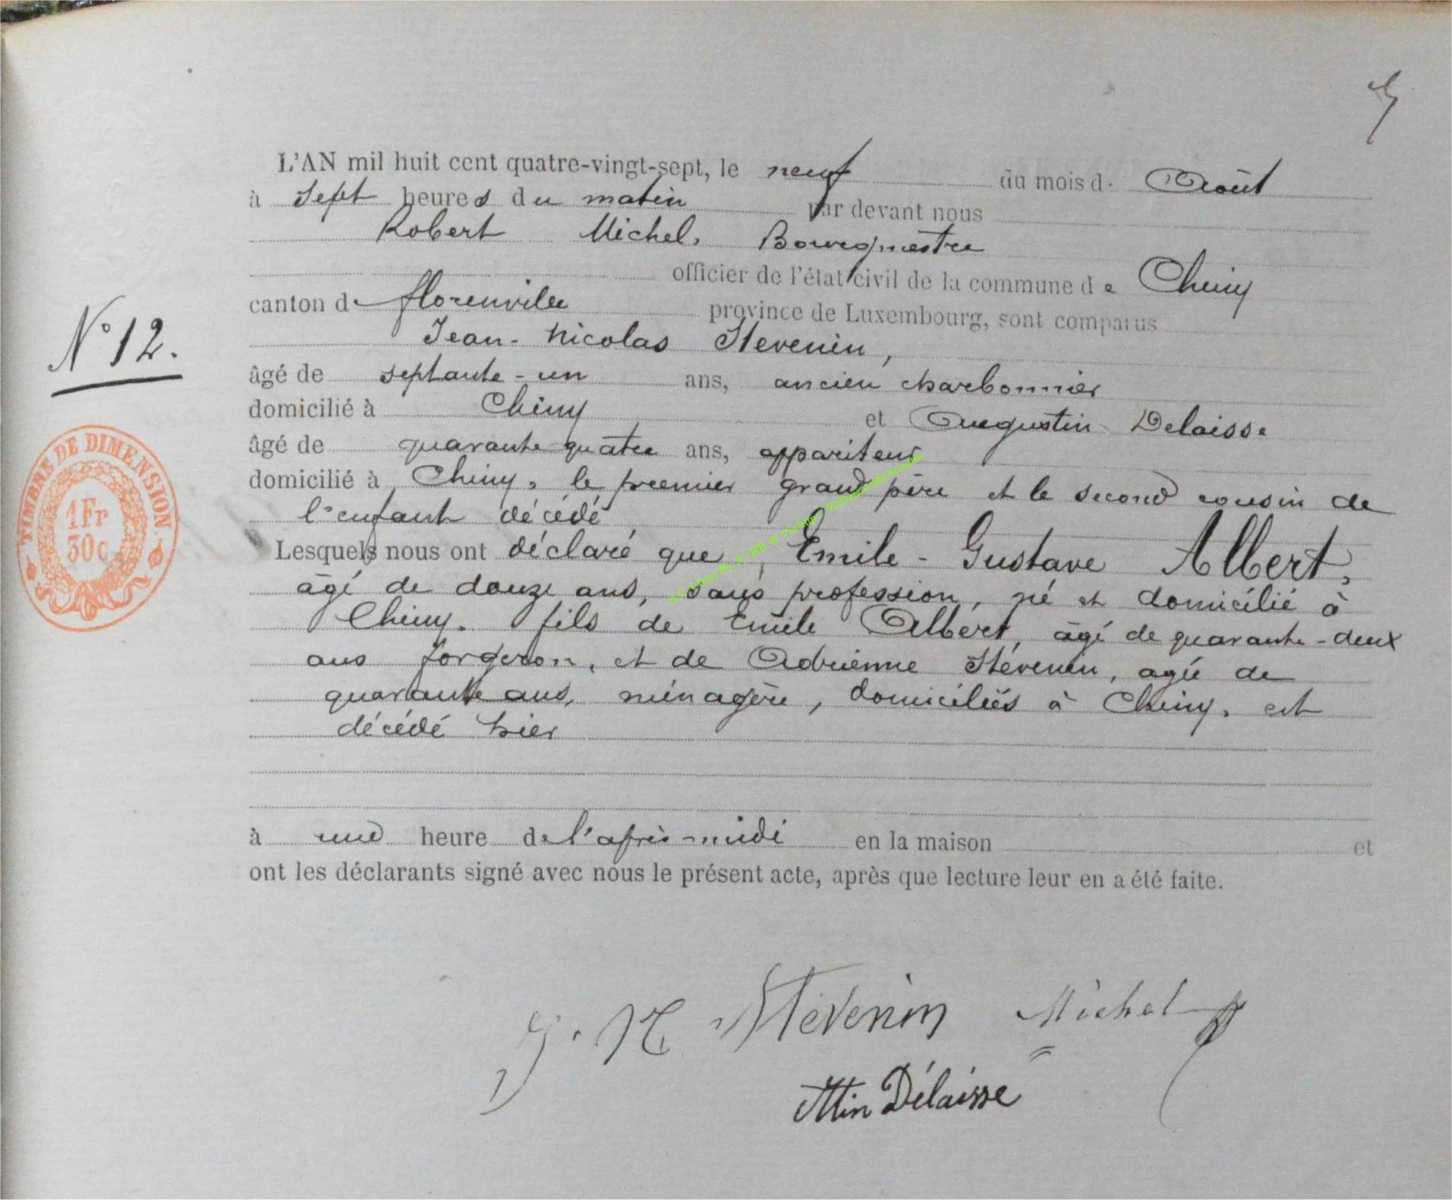 L'AN mil huit cent quatre-vingt-sept, le neuf du mois d' Août
à sept heures du matin par devant nous
Robert Michel, Bourgmestre
officier de l'état civil de la commune de Chiny
canton de florenville province de Luxembourg, sont comparus
N° 12.
Jean-Nicolas Stevenin,
âgé de septante-un ans, ancien charbonnier
domicilié à Chiny et Augustin Delaisse
âgé de quarante quatre ans, appariteur
domicilié à Chiny, le premier grand père et le second cousin de
l'enfant décédé
TIMBRE DE DIMENSION
1Fr
30c
Lesquels nous ont déclaré que, Emile-Gustave Albert,
âgé de douze ans, sans profession, né et domicilié à
Chiny. fils de Emile Albert, âgé de quarante-deux
ans forgeron, et de Adrienne Stévenin, agée de
quarante ans, ménagère, domiciliés à Chiny, est
décédé hier
à une heure de l'après-midi en la maison et
ont les déclarants signé avec nous le présent acte, après que lecture leur en a été faite.
J. N Stévenin Michel
Attin Délaisse